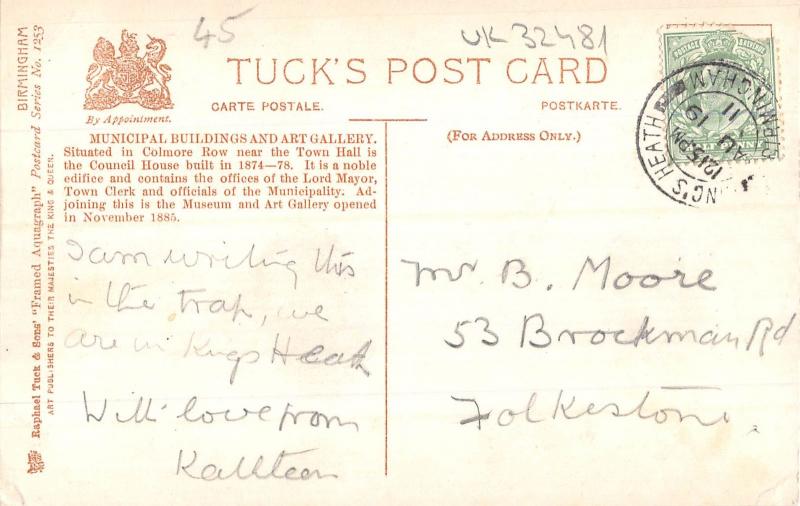 45
UK 32481
TUCK'S POST CARD
By Appointment.
CARTE POSTALE.
POSTKARTE.
MUNICIPAL BUILDINGS AND ART GALLERY.
Situated in Colmore Row near the Town Hall is
the Council House built in 1874—78. It is a noble
edifice and contains the offices of the Lord Mayor,
Town Clerk and officials of the Municipality. Ad-
joining this is the Museum and Art Gallery opened
in November 1885.
(FOR ADDRESS ONLY.)
I am writing this
in the trap, we
are in Kings Heath
With love from
Kathleen
Mr B. Moore
53 Brockman Rd
Folkestone.
BIRMINGHAM
Raphael Tuck & Sons' "Framed Aquagraph" Postcard Series No. 1253
ART PUBLISHERS TO THEIR MAJESTIES THE KING & QUEEN.
POSTAGE REVENUE
KING'S HEATH
BIRMINGHAM
12.15PM
19
11